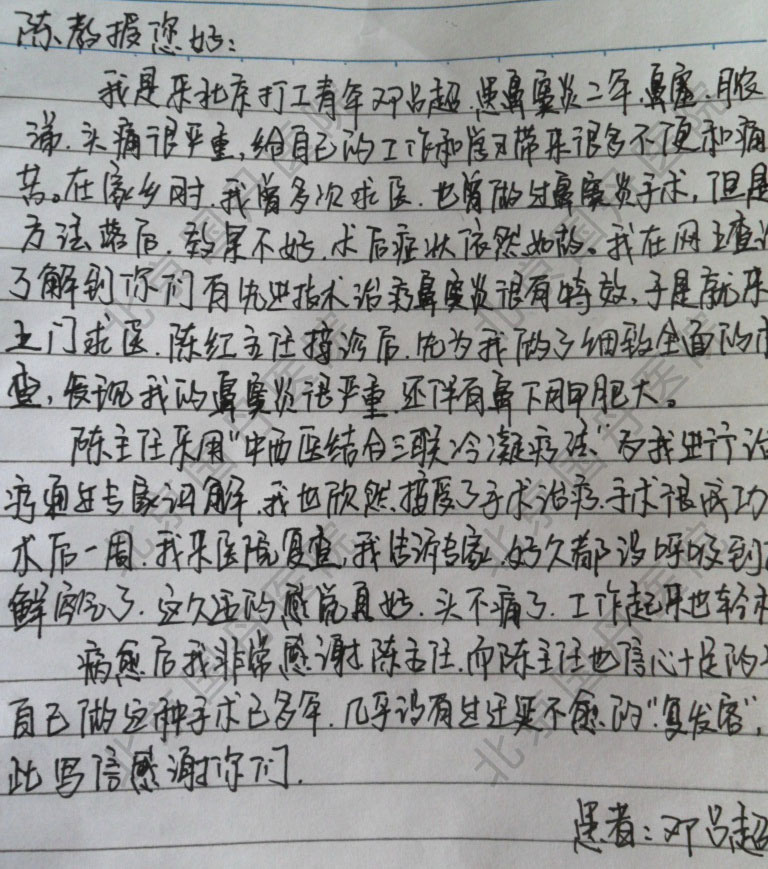 陈教报您好：
我是来北京打工青年邓吕超.患鼻窦炎二年.鼻塞.脓
涕.头痛很严重,给自己的工作和学习带来很多不便和痛
苦。在家乡时.我曾多次求医.也曾做过鼻窦炎手术,但是
方法落后.效果不好.术后症状依然如故。我在网上查询
了解到你们有先进技术治疗鼻窦炎很有特效.于是就来
上门求医.陈红主任接诊后.先为我做了细致全面的
查,发现我的鼻窦炎很严重.还伴有鼻下甲肥大。
陈主任采用"中西医结合三联冷凝疗法"为我进行治
疗通过专家讲解.我也欣然接受了手术治疗.手术很成功
术后一周.我来医院复查,我告诉专家.好久都没呼吸到
鲜空气了.这久违的感觉真好.头不痛了.工作起来也轻松
病愈后我非常感谢陈主任.而陈主任也信心十足的
自己做这种手术已多年.几乎没有过迁延不愈的"复发客",
此写信感谢你们.
患者：邓吕超
北京国丹医院